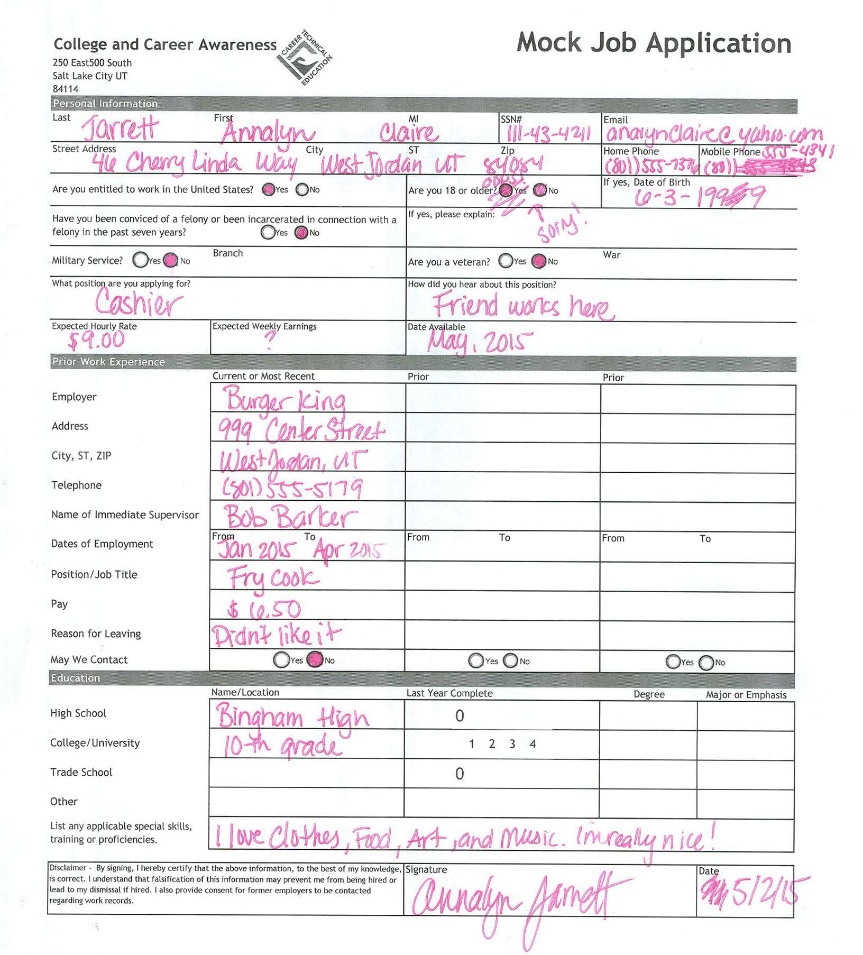 College and Career Awareness
CAREER TECHNICAL EDUCATION
Mock Job Application
250 East500 South
Salt Lake City UT
84114
Personal Information
Last First MI SSN# Email
Jarrett Annalyn Claire 111-43-4211 analynclaire@yahoo.com
Street Address City ST Zip Home Phone Mobile Phone 555-4341
46 Cherry Linda Way West Jordan UT 84084 (801)555-7376 (801)
Are you entitled to work in the United States? Yes No Are you 18 or older? Yes No If yes, Date of Birth
oops! 6-3-1999
sorry!
Have you been conviced of a felony or been incarcerated in connection with a If yes, please explain:
felony in the past seven years? Yes No
Military Service? Yes No Branch Are you a veteran? Yes No War
What position are you applying for? How did you hear about this position?
Cashier Friend works here
Expected Hourly Rate Expected Weekly Earnings Date Available
$9.00 ? May, 2015
Prior Work Experience
Current or Most Recent Prior Prior
Employer Burger King
Address 999 Center Street
City, ST, ZIP West Jordan, UT
Telephone (801) 555-5179
Name of Immediate Supervisor Bob Barker
From To From To From To
Dates of Employment Jan 2015 Apr 2015
Position/Job Title Fry Cook
Pay $ 6.50
Reason for Leaving Didn't like it
May We Contact Yes No Yes No Yes No
Education
Name/Location Last Year Complete Degree Major or Emphasis
High School Bingham High 0
College/University 10-th grade 1 2 3 4
Trade School 0
Other
List any applicable special skills,
training or proficiencies. I love Clothes, Food, Art, and Music. Im really nice!
Disclaimer - By signing, I hereby certify that the above information, to the best of my knowledge,
is correct. I understand that falsification of this information may prevent me from being hired or
lead to my dismissal if hired. I also provide consent for former employers to be contacted
regarding work records.
Signature Date
Annalyn Jarrett 5/2/15